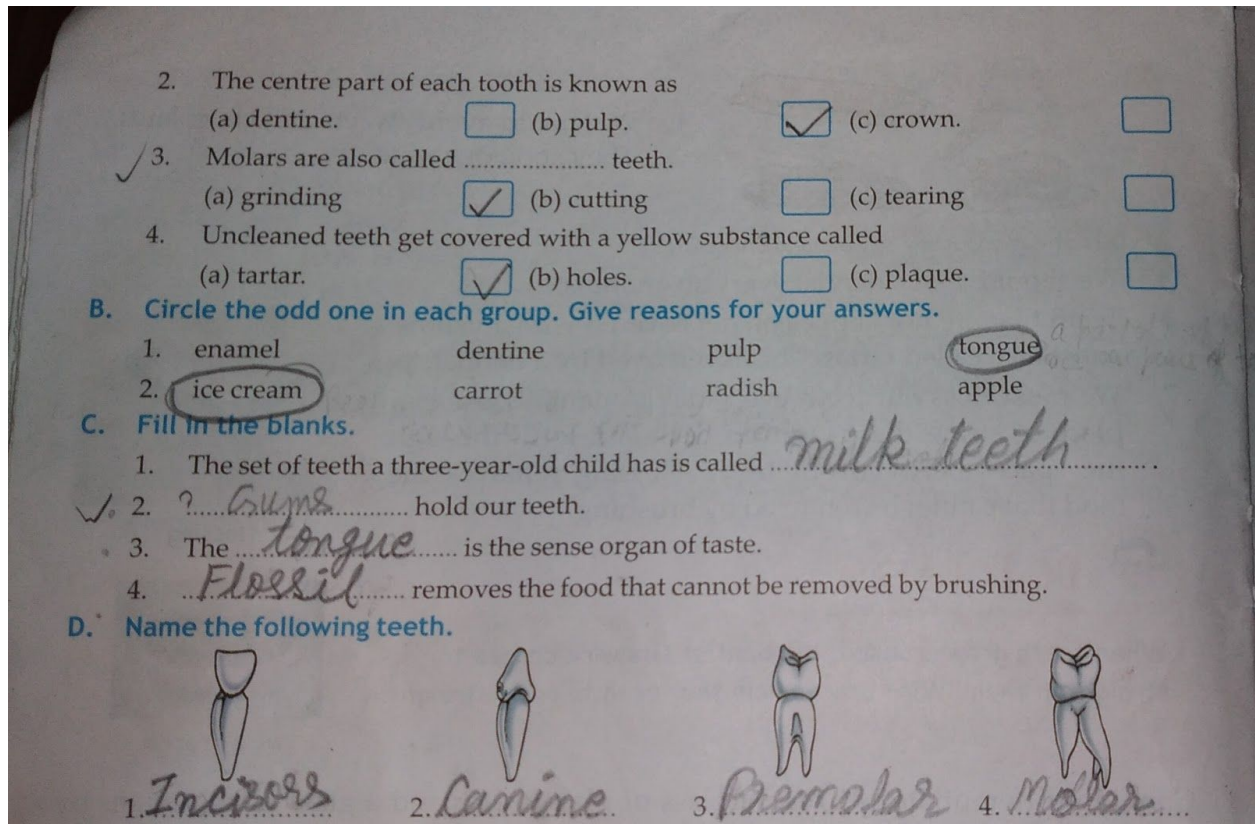 2. The centre part of each tooth is known as
(a) dentine. (b) pulp. ✓ (c) crown.
✓ 3. Molars are also called ........................ teeth.
(a) grinding ✓ (b) cutting (c) tearing
4. Uncleaned teeth get covered with a yellow substance called
(a) tartar. ✓ (b) holes. (c) plaque.
B. Circle the odd one in each group. Give reasons for your answers.
1. enamel dentine pulp tongue
2. ice cream carrot radish apple
C. Fill in the blanks.
1. The set of teeth a three-year-old child has is called ...milk teeth............ .
✓. 2. ?.....Gums............ hold our teeth.
3. The ....tongue....... is the sense organ of taste.
4. ..Flossil........ removes the food that cannot be removed by brushing.
D. Name the following teeth.
1. Incisors 2. Canine 3. Premolar 4. Molar